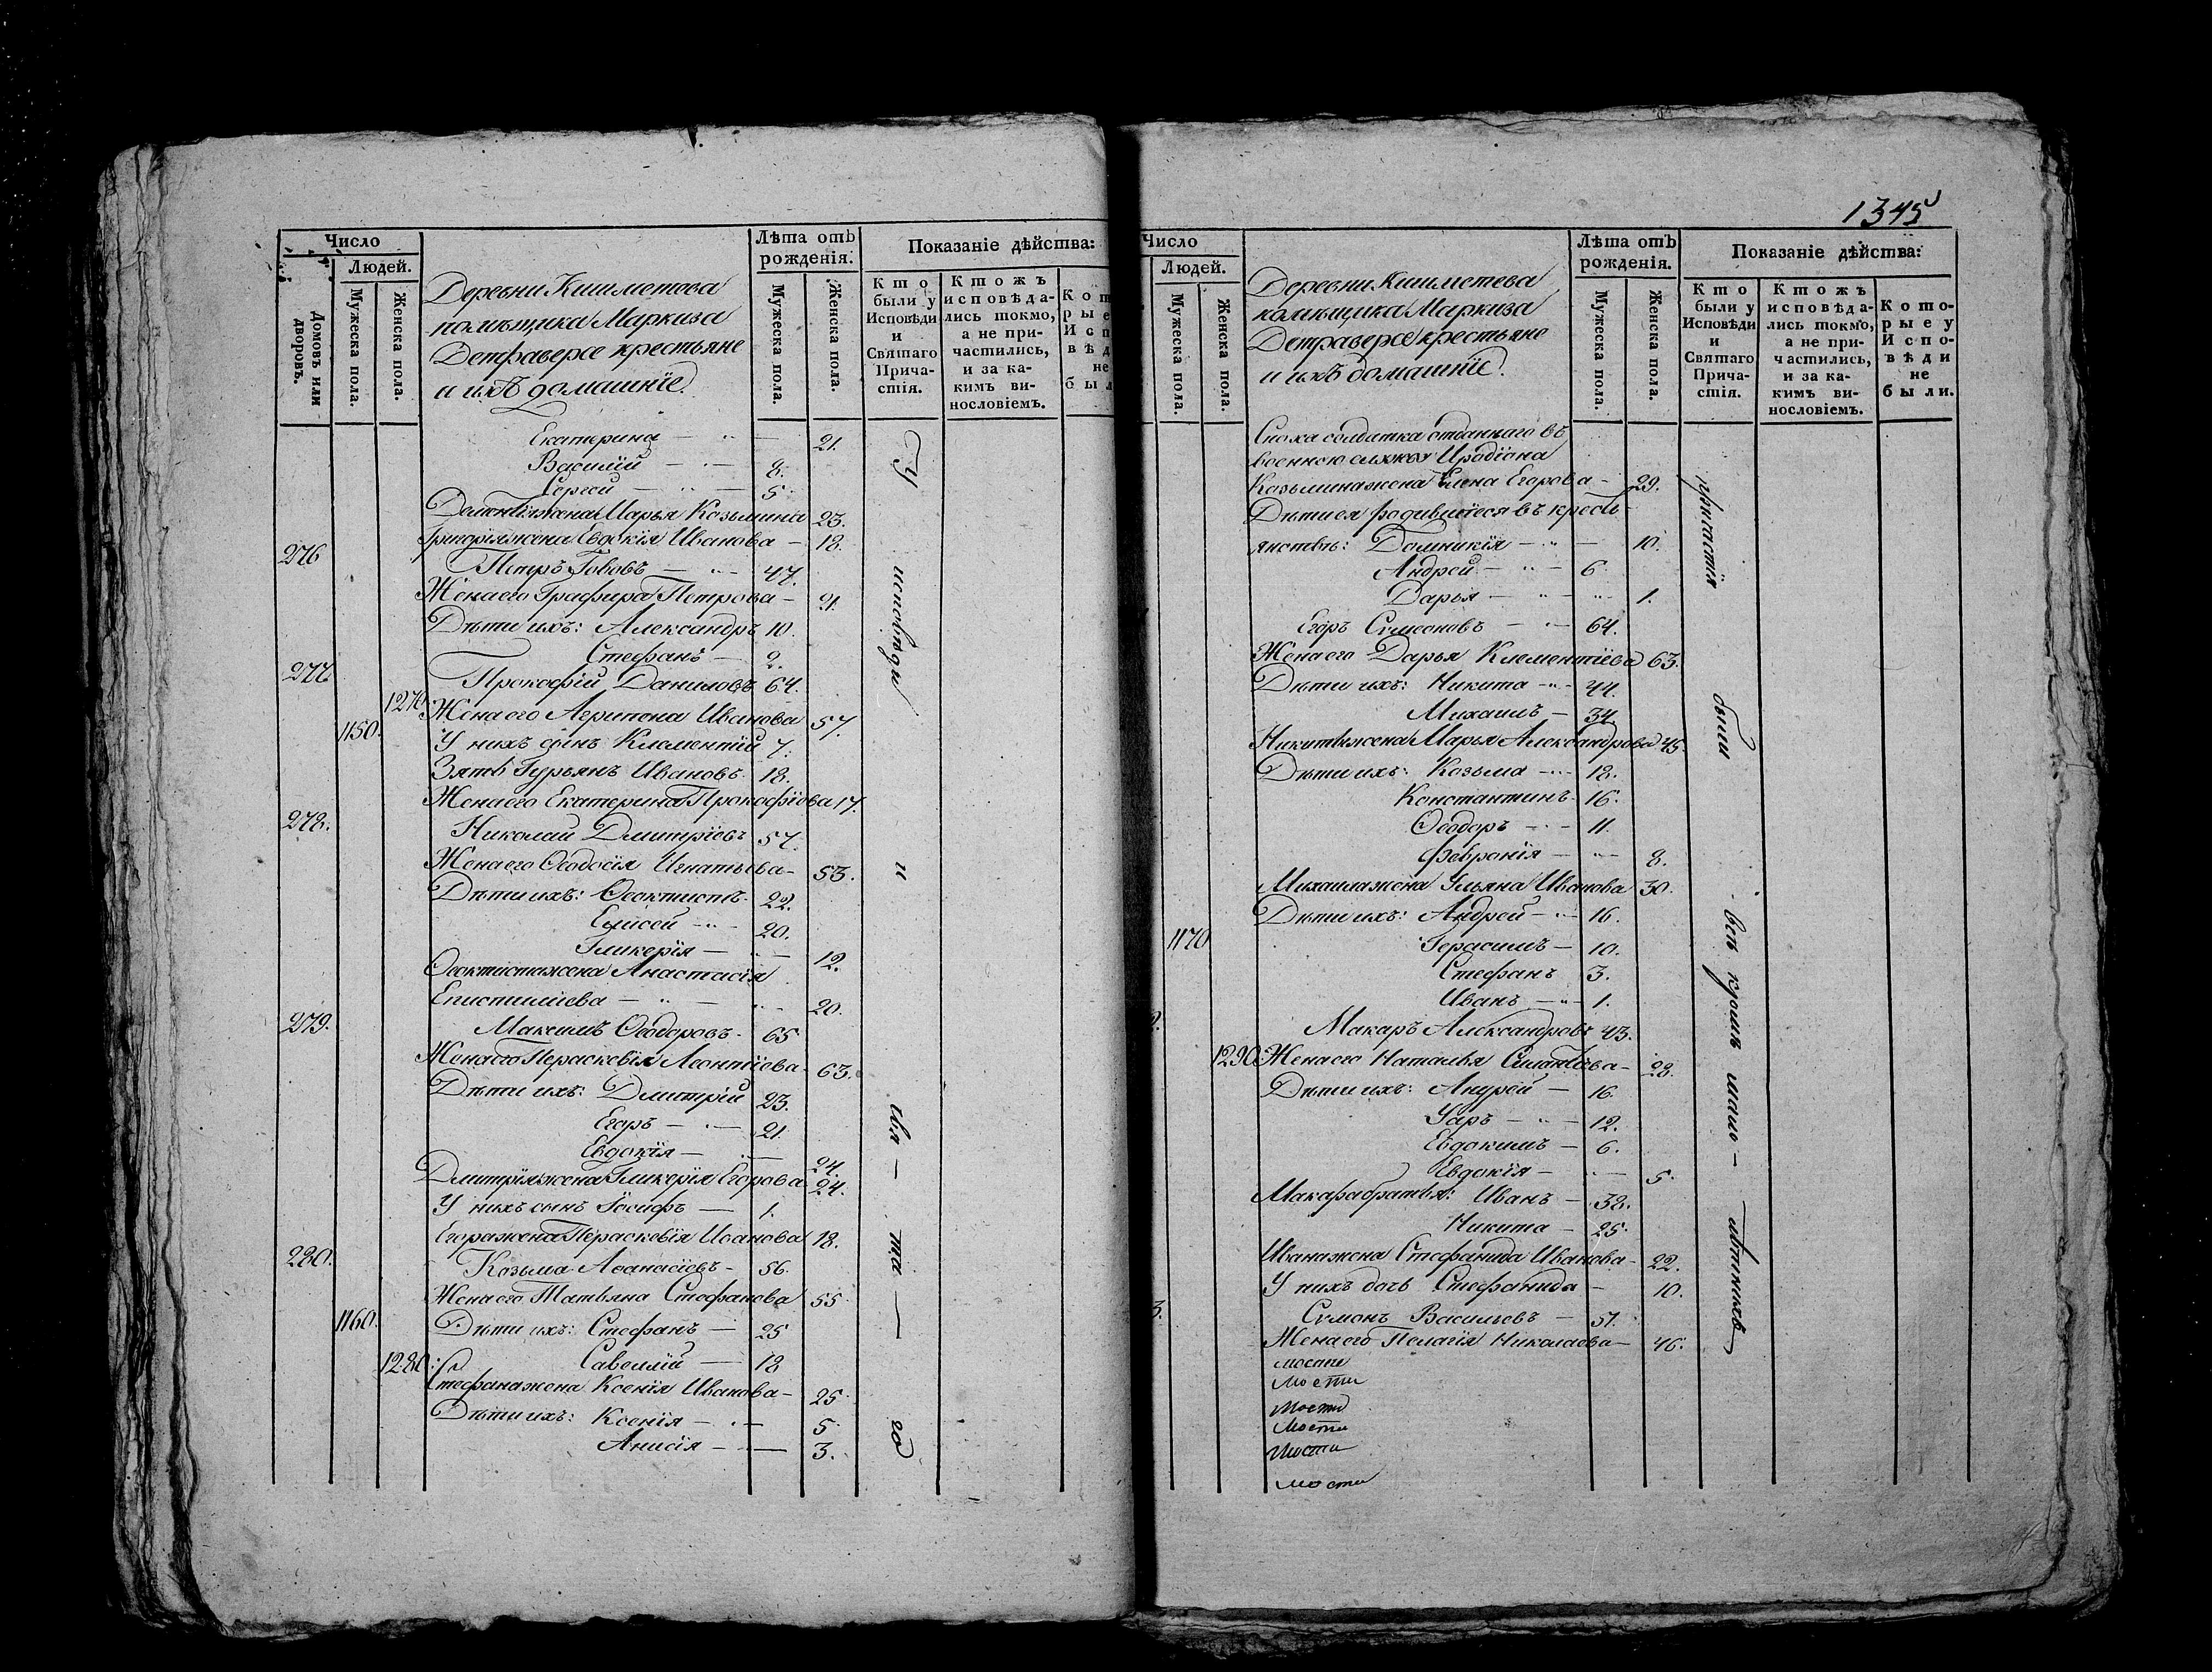 Число
Людей.
Домовъ или дворовъ.
Мужеска пола.
Женска пола.
Деревни Кишметева
помѣщика Маркиза
Детраверсе крестьяне
и ихъ домашніе.
Лѣта отъ рожденія.
Мужеска пола.
Женска пола.
Показаніе дѣйства:
Кто были у Исповѣди и Святаго Причастія.
Ктожъ исповѣдались токмо, а не причастились, и за какимъ винословіемъ.
Екатерина — 21.
Василій — 8.
Сергей — 5.
жена Марья Козьмина 23.
Григорія жена Евдокія Иванова — 18.
276 Петръ — 47.
Жена его Графира Петрова — 21.
Дѣти ихъ: Александръ 10.
Стефанъ — 2.
277 Прокофій Даниловъ 64.
1270 Жена его Агрипена Иванова 57.
1150. У нихъ сынъ Климентій 7.
Зять Гурьянъ Ивановъ 18.
Жена его Екатерина Прокофіева 17.
278. Николай Дмитріевъ 57.
Жена его Ѳеодосія Игнатьева — 53.
Дѣти ихъ: Ѳеоктистъ 22.
Елисей — 20.
Гликерія — 12.
Ѳеоктиста жена Анастасія
Епистиміева — 20.
279. Максимъ Ѳеодоровъ 65
Жена его Параскевія Леонтіева 63.
Дѣти ихъ: Дмитрій 23.
Егоръ — 21.
Евдокія — 24.
Дмитрія жена Гликерія Егорова 24.
У нихъ сынъ Іосифъ — 1.
Егора жена Параскевія Иванова 18.
280. Козьма Аѳанасіевъ 56.
Жена его Татьяна Стефанова 55
1160. Дѣти ихъ: Стефанъ — 25
1280. Савелій — 18
Стефана жена Ксенія Иванова — 25.
Дѣти ихъ: Ксенія — 5.
Анисія — 3.
У
исповѣди
и
свя —
та —
го
1345
Число
Людей.
Мужеска пола.
Женска пола.
Деревни Кишметева
помѣщика Маркиза
Детраверсе крестьяне
и ихъ домашніе.
Лѣта отъ рожденія.
Мужеска пола.
Женска пола.
Показаніе дѣйства:
Кто были у Исповѣди и Святаго Причастія.
Ктожъ исповѣдались токмо, а не причастились, и за какимъ винословіемъ.
Которые у Исповѣди не были.
Сноха солдатка отданнаго въ
военную службу Иродіона
Козьмина жена Елена Егорова — 29.
Дѣти ея родившіеся въ кресть
янствѣ: Домникія — 10.
Андрей — 6
Дарья — 1.
Егоръ Сѵмеоновъ — 64.
Жена его Дарья Клементіева 63.
Дѣти ихъ: Никита — 44.
Михаилъ — 34.
Никиты жена Марья Александрова 45.
Дѣти ихъ: Козьма — 18.
Константинъ 16.
Ѳеодоръ — 11.
Февронія — 8.
Михаила жена Ульяна Иванова 30.
Дѣти ихъ: Андрей — 16.
1170 Герасимъ — 10.
Стефанъ 3.
Иванъ — 1.
Макаръ Александровъ 43.
1290. Жена его Наталья — 28.
Дѣти ихъ: Андрей — 16.
Уаръ — 12.
Евдокимъ — 6.
Евдокія — 5.
Макара братья: Иванъ — 38.
Никита — 25.
Ивана жена Стефанида Иванова — 22.
У нихъ дочь Стефанида — 10.
Сѵмонъ Васильевъ — 51.
Жена его Пелагія Николаева — 46.
мости
мости
мости
мости
мости
мости
причастія
были
всѣ кромѣ мало —
лѣтнихъ